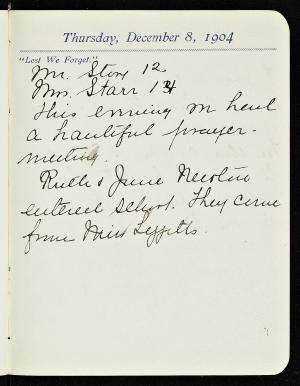 Thursday, December 8, 1904
"Lest We Forget."
Mr. Story 12
Mrs. Starr 1
This evening we had
a beautiful prayer-
meeting.
Ruth & June
entered school. They came
from Miss